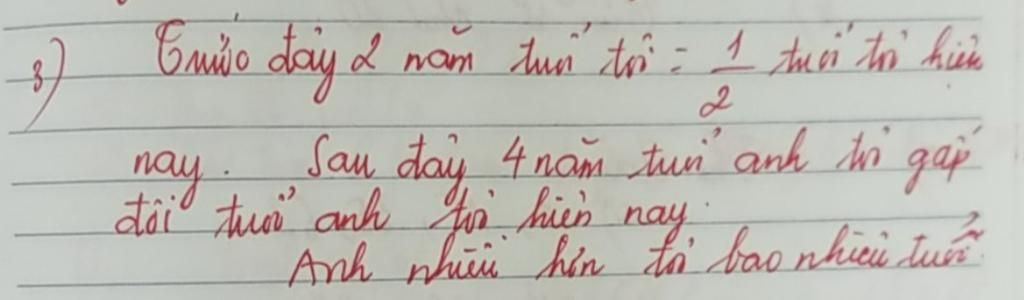 3) Trước đây 2 năm tuổi tôi = 1/2 tuổi tôi hiện
nay. Sau đây 4 năm tuổi anh tôi gấp
đôi tuổi anh tôi hiện nay.
Anh nhiều hơn tôi bao nhiêu tuổi.